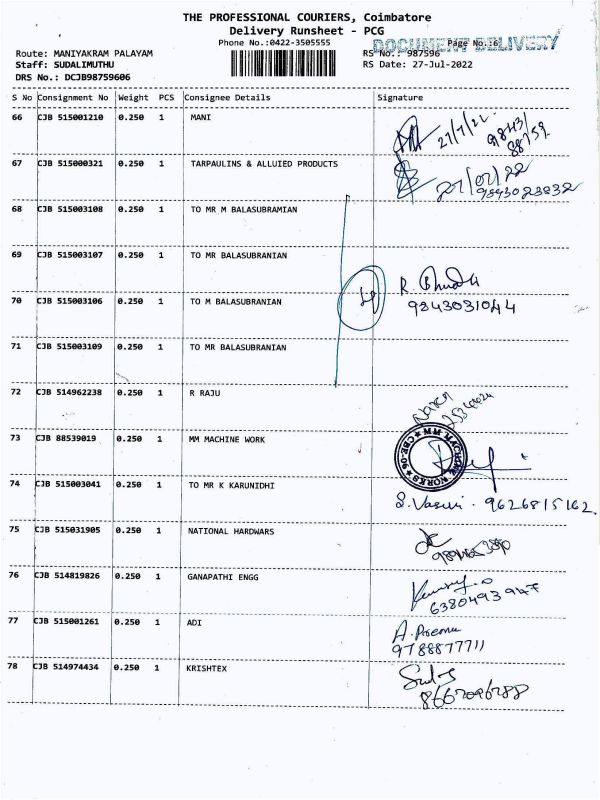 THE PROFESSIONAL COURIERS, Coimbatore
Delivery Runsheet - PCG
Phone No.:0422-3505555
DOCUMENT DELIVERY
Page No.:6
Route: MANIYAKRAM PALAYAM
RS No.: 987596
Staff: SUDALIMUTHU
RS Date: 27-Jul-2022
DRS No.: DCJB98759606
S No Consignment No Weight PCS Consignee Details Signature
66 CJB 515001210 0.250 1 MANI 27/7/22
67 CJB 515000321 0.250 1 TARPAULINS & ALLUIED PRODUCTS 27/07/22
9843023832
68 CJB 515003108 0.250 1 TO MR M BALASUBRAMIAN
69 CJB 515003107 0.250 1 TO MR BALASUBRANIAN
70 CJB 515003106 0.250 1 TO M BALASUBRANIAN 9843031044
71 CJB 515003109 0.250 1 TO MR BALASUBRANIAN
72 CJB 514962238 0.250 1 R RAJU
73 CJB 88539019 0.250 1 MM MACHINE WORK
74 CJB 515003041 0.250 1 TO MR K KARUNIDHI S. Vasuki. 9626815162.
75 CJB 515031905 0.250 1 NATIONAL HARDWARS
76 CJB 514819826 0.250 1 GANAPATHI ENGG
6380493947
77 CJB 515001261 0.250 1 ADI A. Prema
9788877711
78 CJB 514974434 0.250 1 KRISHTEX
8667096288